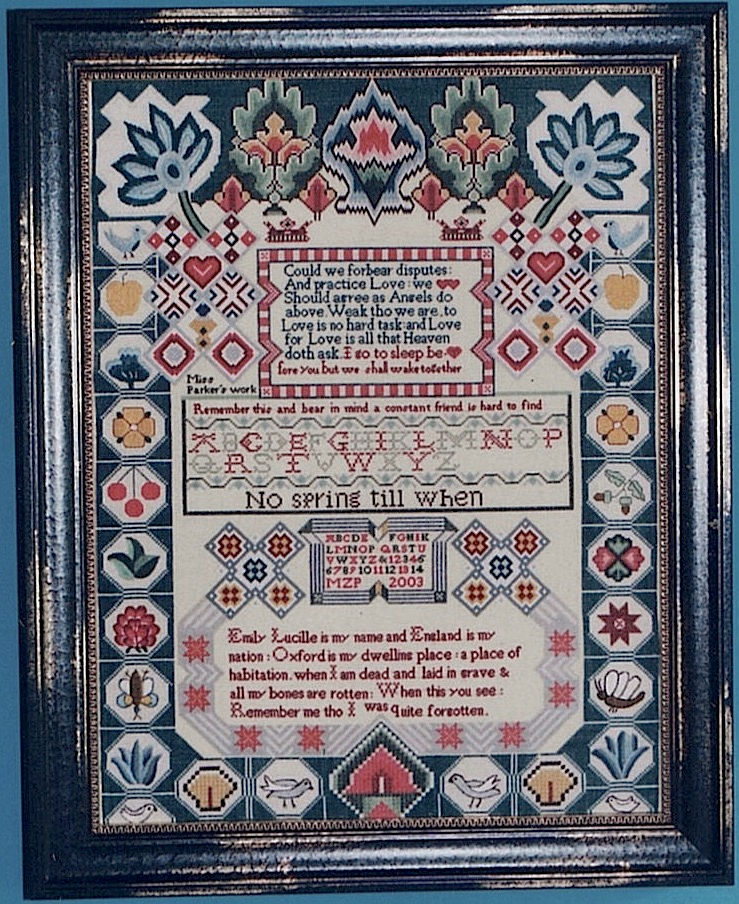 Could we forbear disputes:
And practice Love: we
Should agree as Angels do
above. Weak tho we are, to
Love is no hard task: and Love
for Love is all that Heaven
doth ask. I go to sleep be
fore you but we shall wake together
Miss
Parker's work
Remember this and bear in mind a constant friend is hard to find
ABCDEFGHIKLMNOP
QRSTVWXYZ
No spring till when
ABCDE FGHIK
LMNOP QRSTU
VWXYZ & 12345
6789 10 11 12 13 14
MZP 2003
Emily Lucille is my name and England is my
nation: Oxford is my dwelling place: a place of
habitation. when I am dead and laid in grave &
all my bones are rotten: When this you see:
Remember me tho I was quite forgotten.